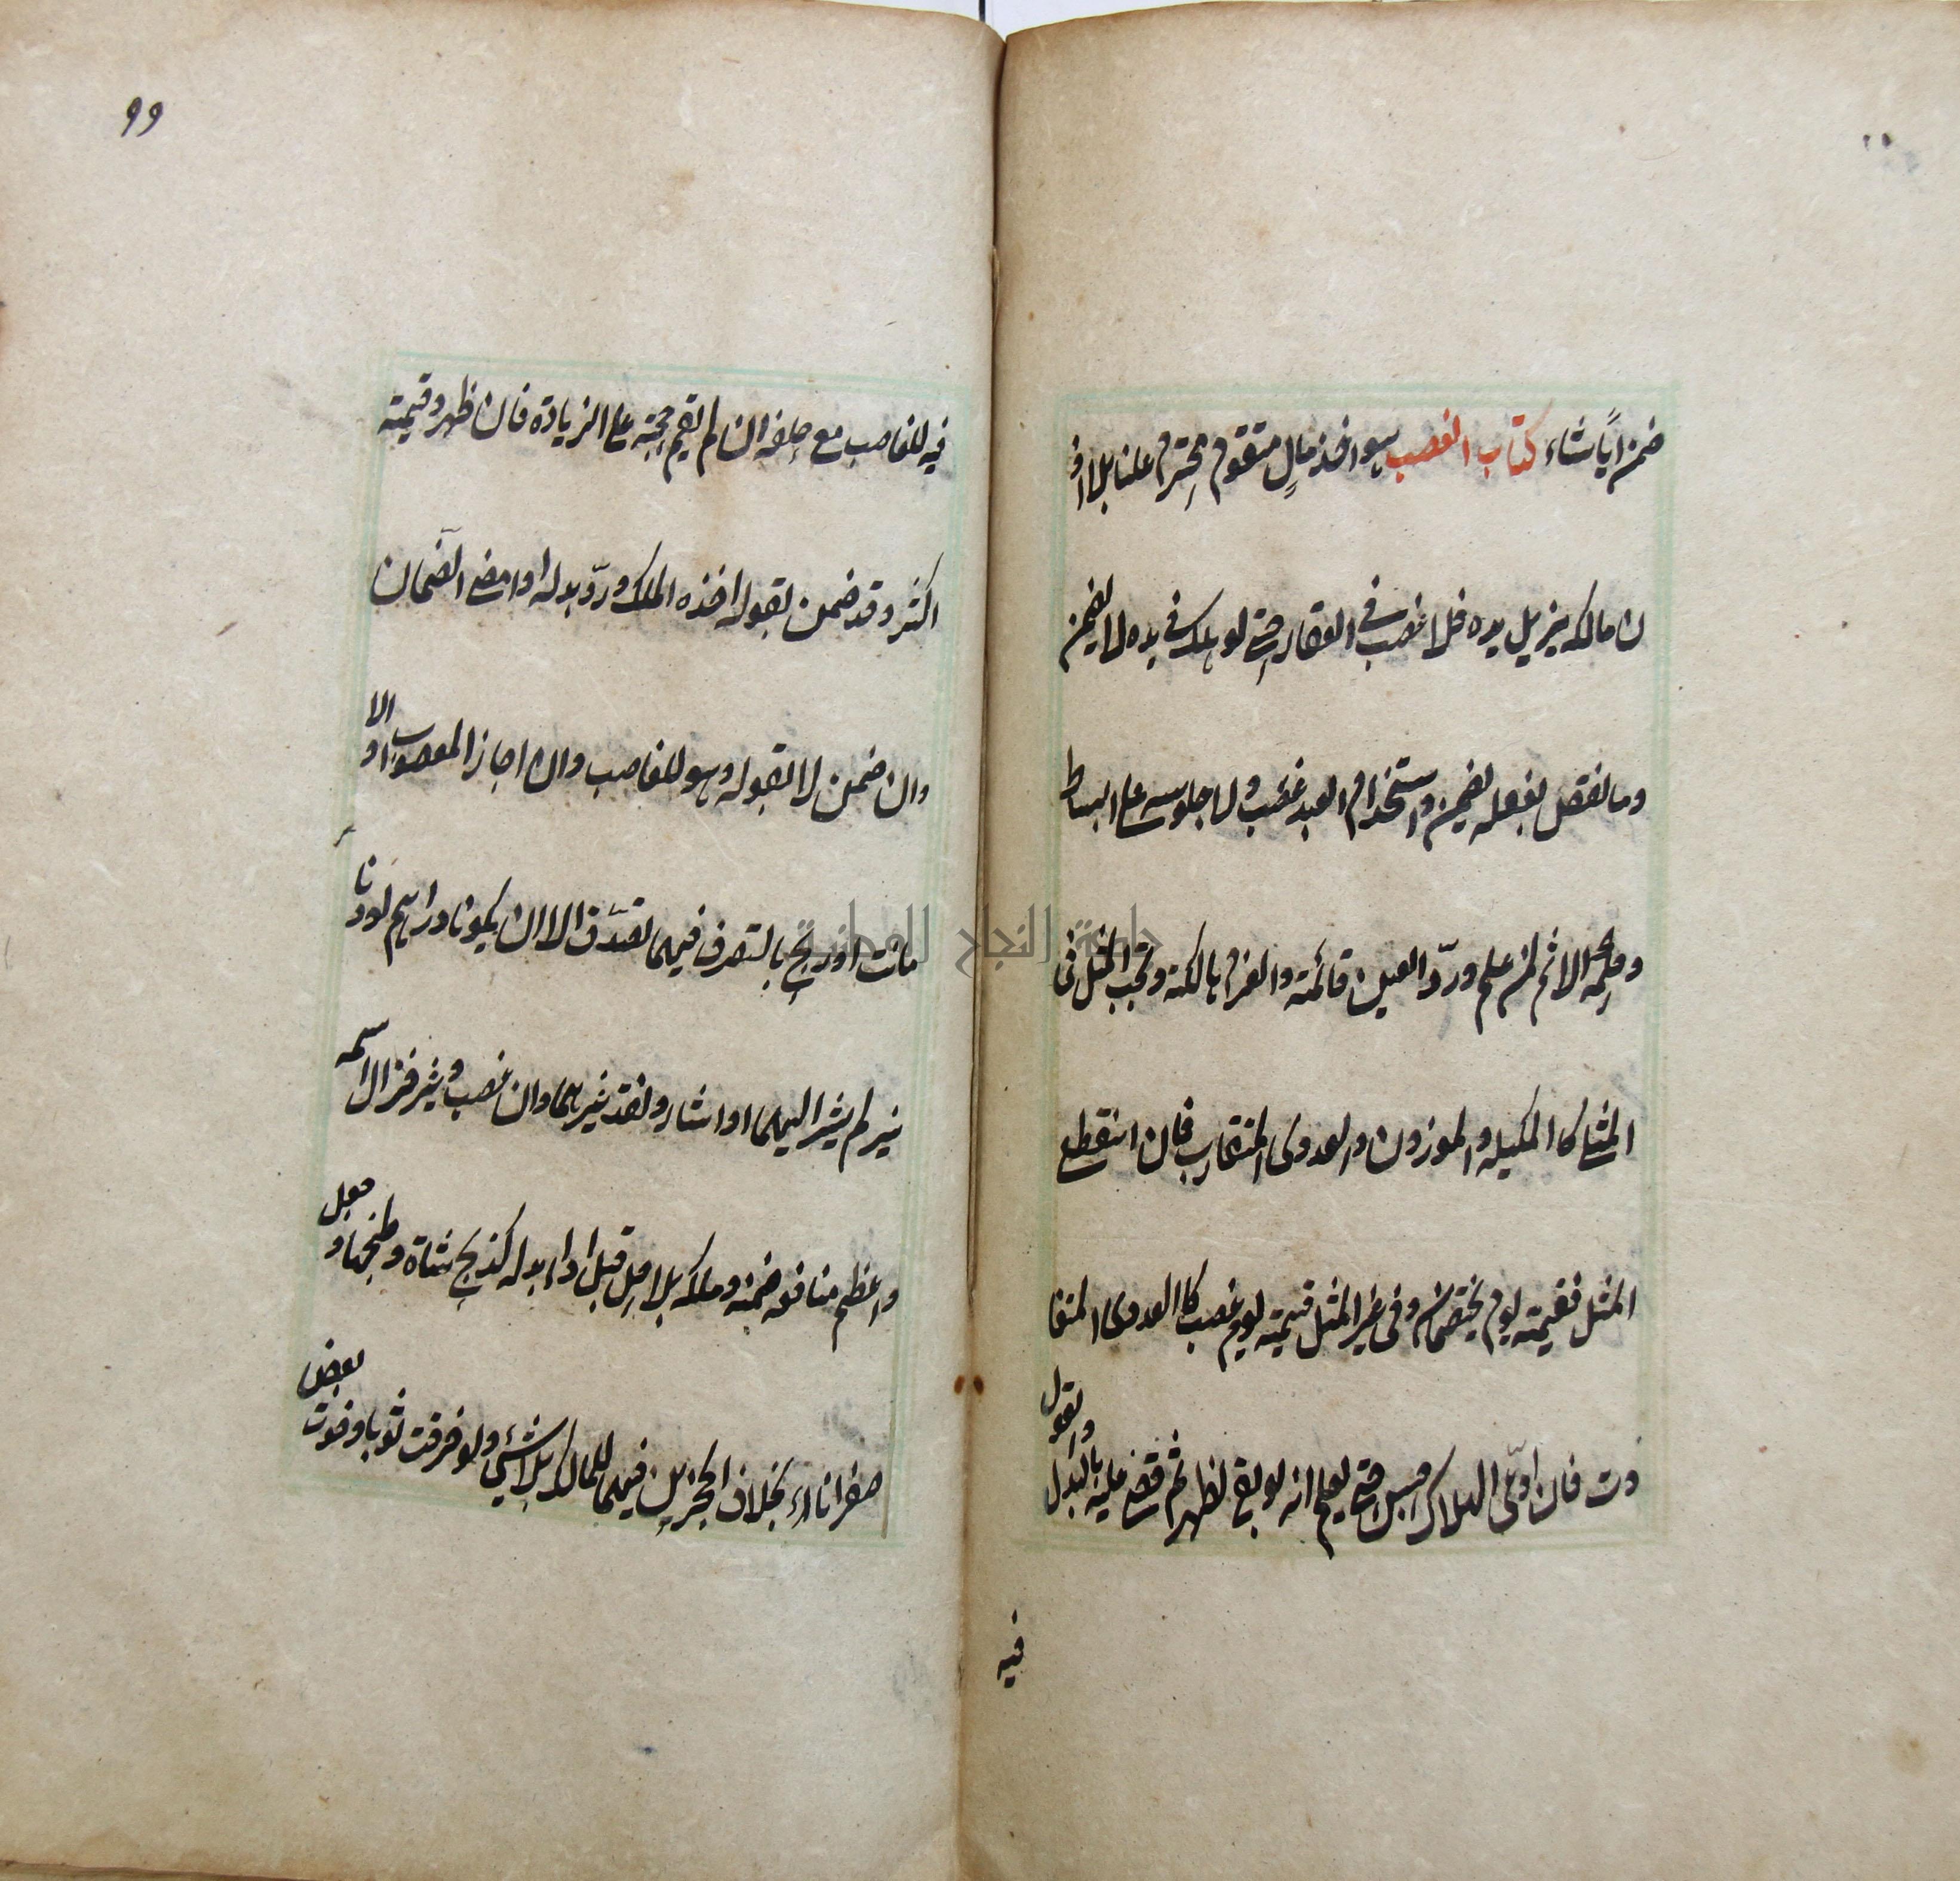 ضمن ايًا شاء كتاب الغصب هو اخذ مالٍ متقوم محترم علنا بلا اذ
ن مالكه يزيل يده فلا غصب فى العقار حتى لو هلك فى يده لا يضمن
وما نقص بفعله يضمن واستخدام العبد غصب ولا جلوسه على البساط
وحكمه الاثم لمن علم وردّ العين قائمة والغرم هالكة ويجب المثل فى
المثلى كالمكيل والموزون والعددى المتقارب فان انقطع
المثل فقيمته يوم يختصمان وفى غير المثل قيمته يوم غصب كالعددى المتفا
وت فان ادّعى الهلاك حبس حتى يعلم انه لو بقى لظهر ثم قضى عليه بالبدل
والقول
فيه
99
فيه للغاصب مع حلفه ان لم يقم حجة على الزيادة فان ظهر وقيمته
اكثر وقد ضمن بقوله اخذه المالك وردّ بدله او امضى الضمان
وان ضمن لا بقوله وهو للغاصب وان اجاز المغصوب او
الا
مانت او ربح بالتصرف فيهما تصدّق الا ان يكونا دراهم او دنا
نير لم يشر اليهما او اشار ونقد غيرهما وان غصب وغير فزال
اسمه
واعظم منافعه ضمنه وملكه بلا حل قبل اداء بدله كذبح شاة وطبخها و
جعل
صفر اناء بخلاف الحجرين فهما للمالك بلا شئ ولو خرقت ثوبا وفوت
بعض
جامعة النجاح الوطنية